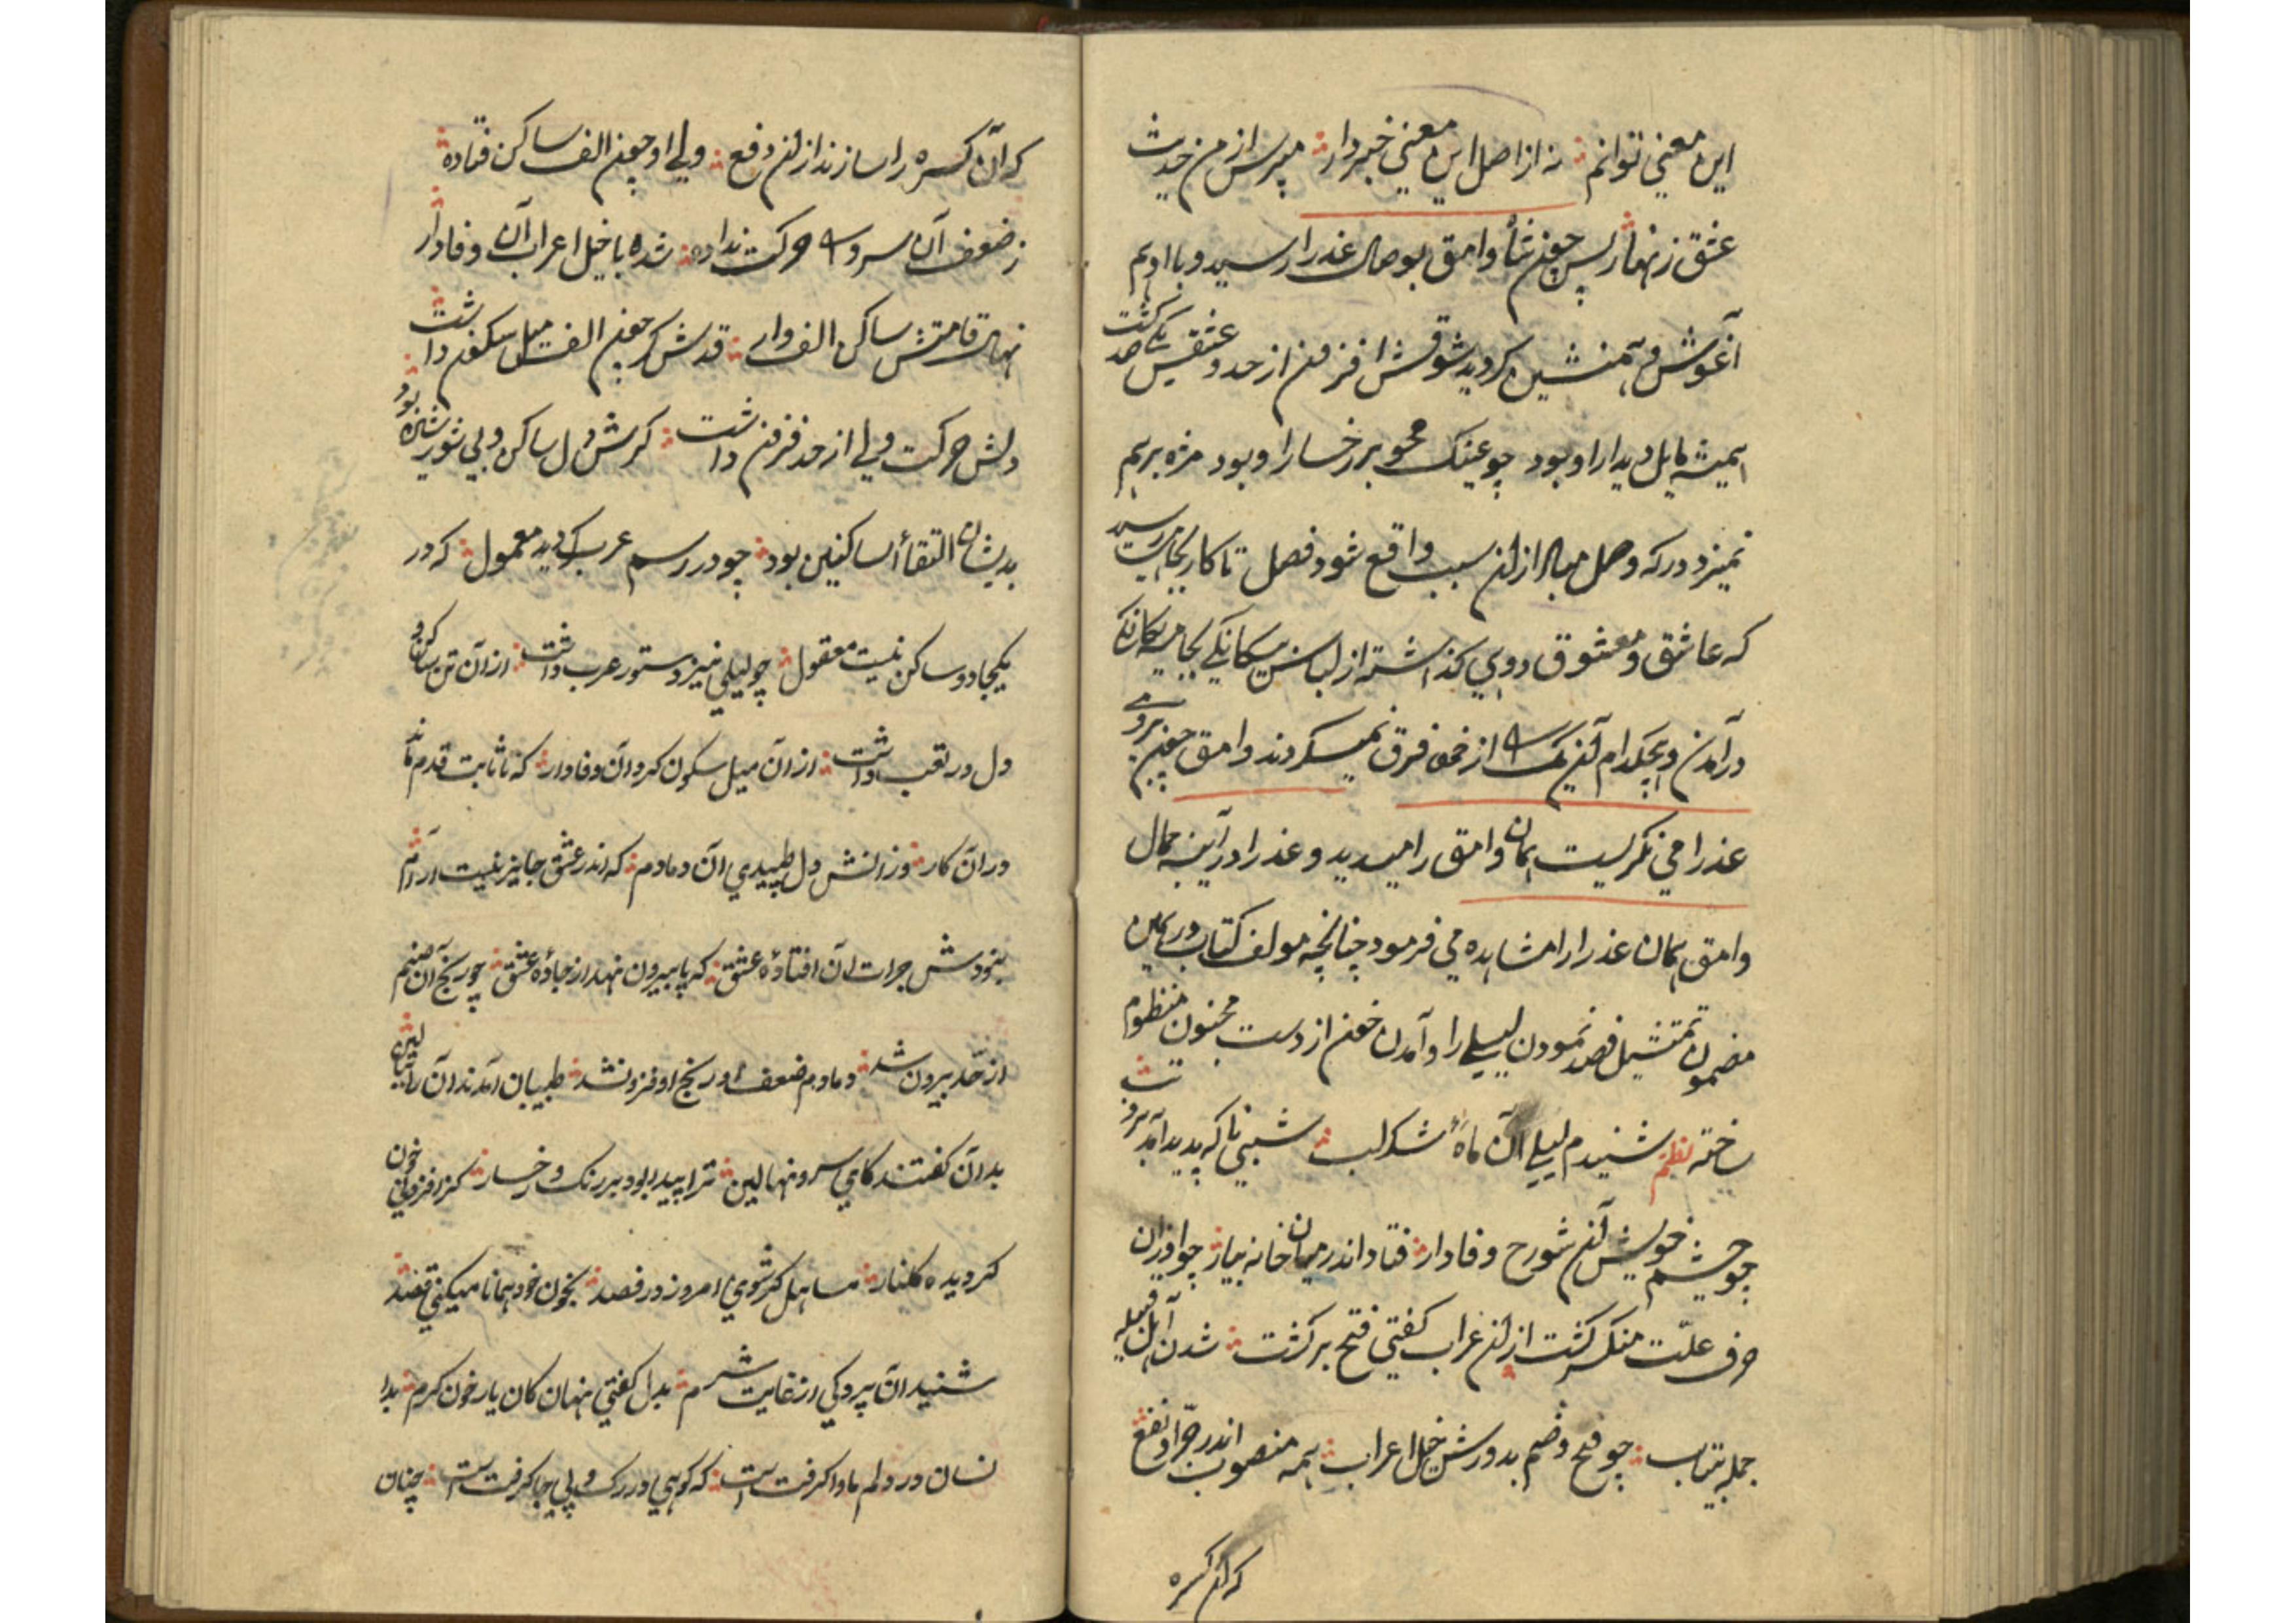 این معنی توانم نه از اصل این معنی خبردار مپرس از من حدیث
عشق زنهار پس چون شاه وامق بوصال عذرا رسید و با او هم
آغوش و همنشین گردید شوقش افزون از حد و عشقش یکی صد گشت
همیشه مایل دیدار او بود چو عینک محو بر رخسار او بود مژه برهم
نمیزد در که وصل مبادا زان سبب واقع شود فصل تا کار بجایی رسید
که عاشق و معشوق دویی گذاشته از لباس بیگانگی بجامه یگانگی
در آمدن و هیچکدام آن یک را از خود فرق نمیکردند وامق چون بروی
عذرا می نگریست همان وامق را میدید و عذرا در آیینه جمال
وامق همان عذرا را مشاهده می فرمود چنانچه مولف کتاب در همین
مضمون تمثیل فصد نمودن لیلی را و آمدن خون از دست مجنون منظوم
ساخته نظم شنیدم لیلی آن ماه شکرلب شبی ناگه پدید آمد برو تب
چو چشم خویش آن شوخ وفادار فتاد اندر میان خانه بیمار چو او زان
حرف علت منکسر گشت ازان اعراب گفتی فتح برگشت شدن اهل قبیله
جمله بیتاب چو فتح و ضم بدورش خیل اعراب همه منصوب اندر جر او نفع
که آن کسره
که آن کسره را سازند ازان رفع ولی او چون الف ساکن فتاده
ز ضعف آن سرو را حرکت نداده شده با خیل اعراب آن وفادار
نهال قامتش ساکن الف وار قدش گر چون الف میل سکون داشت
دلش حرکت ولی از حد فزون داشت گرش دل ساکن و بی شور و شین بود
بدیشان التقاء ساکنین بود چو در رسم عرب گردید معمول که در
یکجا دو ساکن نیست معقول چو لیلی نیز دستور عرب داشت ازان تن ساکن و
دل در تعب داشت ازان میل سکون کرد آن وفادار که تا ثابت قدم ماند
دران کار وزانش دل طپیدی آن دمادم که اندر عشق جایز نیست آرام
بنودش جرات آن افتاده عشق که پا بیرون نهد از جاده عشق چو رنج آن صنم
از حد بیرون شد دمادم ضعف او رنج او فزون شد طبیبان آمدند آن را ببالین
بدان گفتند کای سرو نهالین ترا پیدا بود بر رنگ رخسار کز افزونی خون
گردیده گلنار مساهل گر شوی امروز در فصد بخون خود همانا میکنی قصد
شنید آن پردگی از غایت شرم بدل گفتی نهان کان یار خون گرم بدا
نسان در دلم ماوا گرفت است که گوهی در رگ و پی جا گرفت است چنان